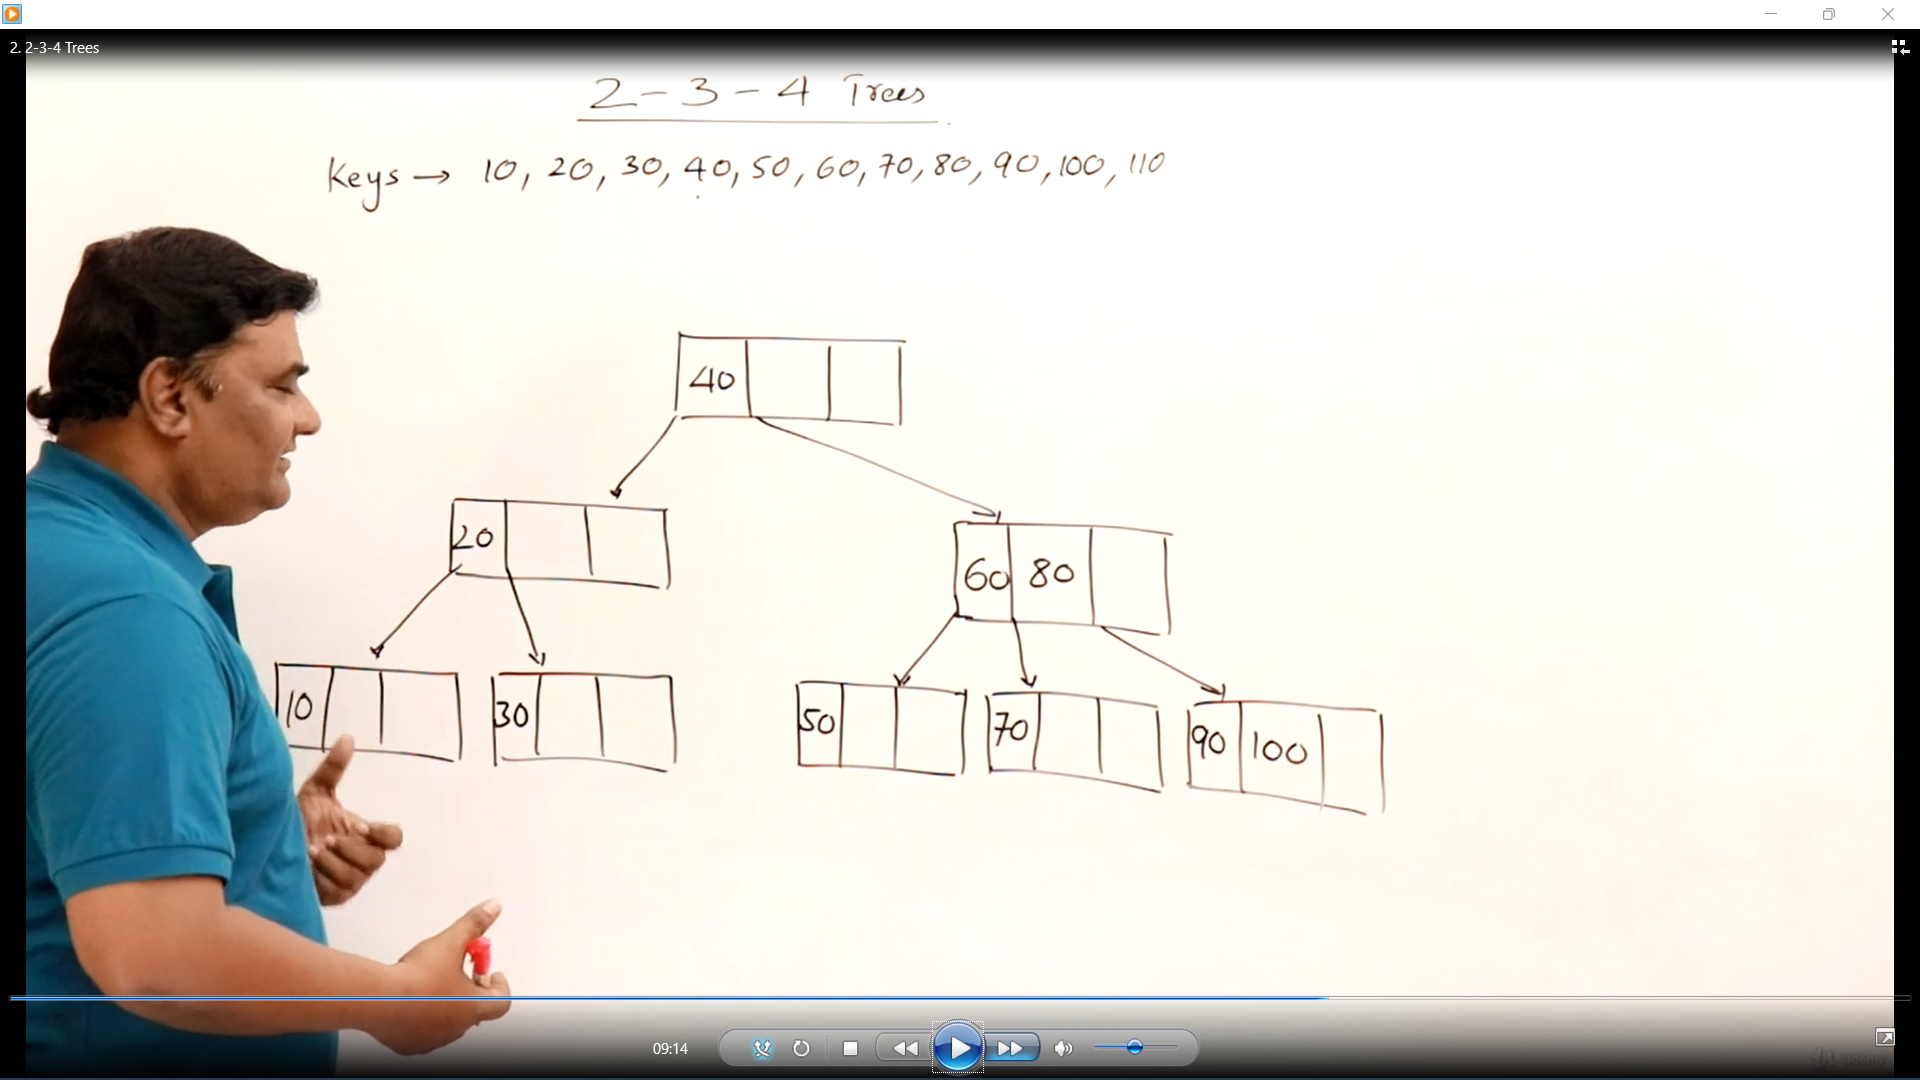 2. 2-3-4 Trees
2-3-4 Trees
Keys → 10, 20, 30, 40, 50, 60, 70, 80, 90, 100, 110
40
20
60 80
10 30 50 70 90 100
09:14
Udemy